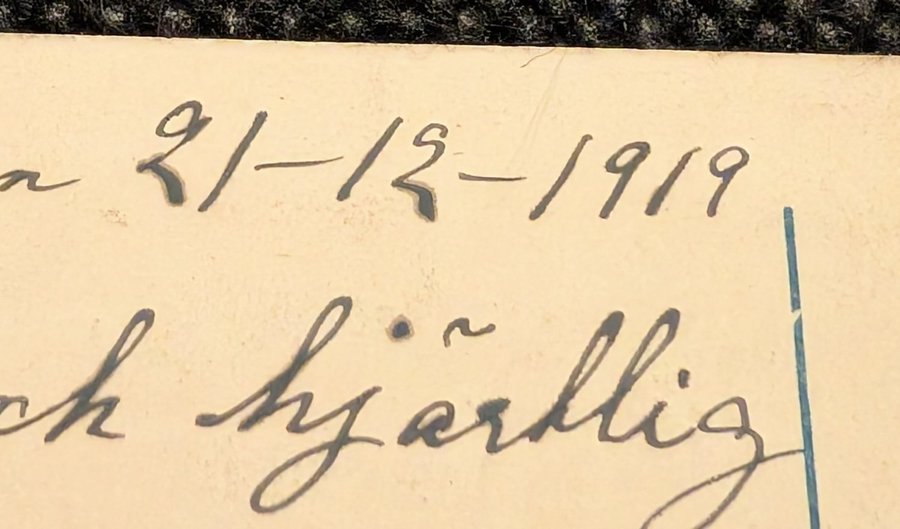 n 21-12-1919
ch hjärtlig